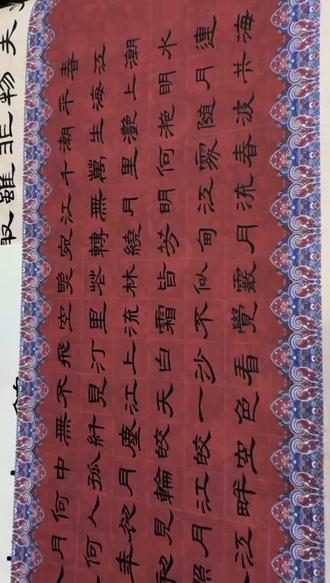 春江潮水連海
平海上明月共
潮生灧灧隨波
千萬里何處春
江無月明江流
宛轉繞芳甸月
照花林皆似霰
空里流霜不覺
飛汀上白沙看
不見江天一色
無纖塵皎皎空
中孤月輪江畔
何人初見月江
月何年初照
物非雖取